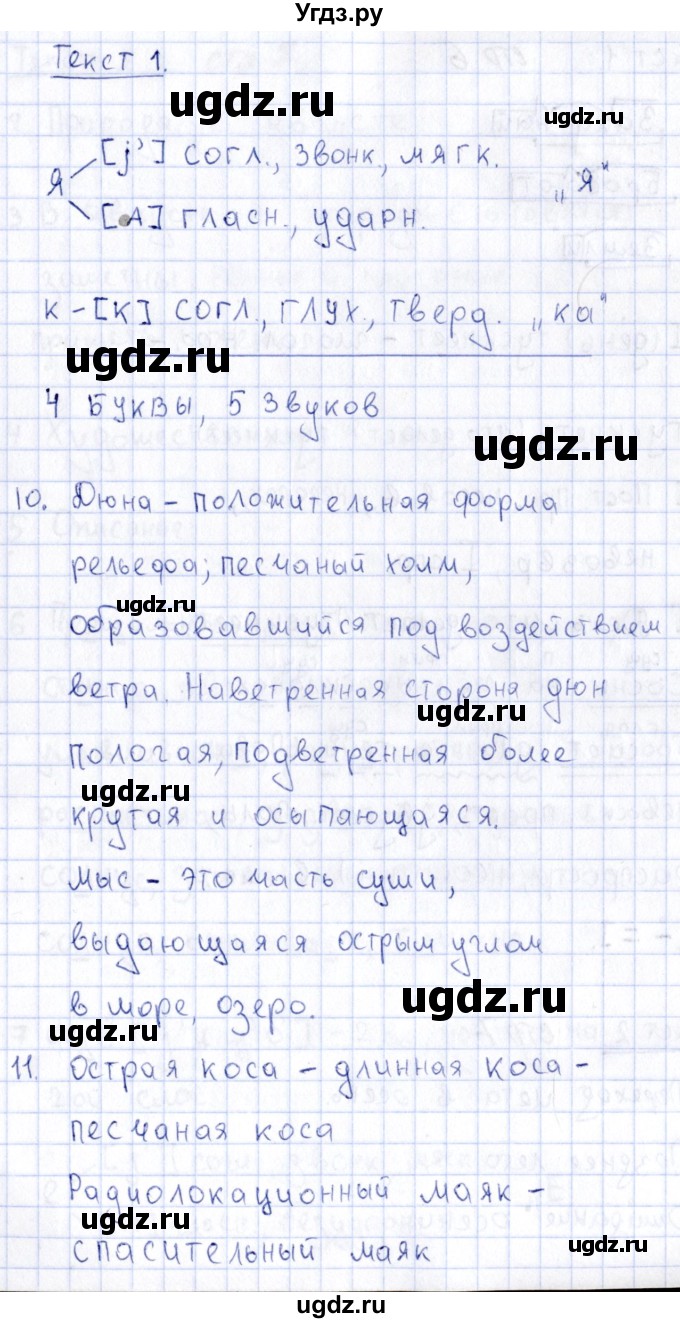 Угдз.ру
Текст 1.
ugdz.ru
ugdz.ru
я [j'] согл., звонк., мягк. „я"
[А] гласн., ударн.
к - [к] согл., глух., тверд. „ка"
ugdz.ru
4 буквы, 5 звуков
ugdz.ru
10. Дюна - положительная форма
рельефа; песчаный холм,
ugdz.ru
образовавшийся под воздействием
ветра. Наветренная сторона дюн
ugdz.ru
пологая, подветренная более
ugdz.ru
крутая и осыпающаяся.
Мыс - это часть суши,
выдающаяся острым углом
в море, озеро.
ugdz.ru
ugdz.ru
11. Острая коса - длинная коса -
песчаная коса
Радиолокационный маяк -
ugdz.ru
спасительный маяк
ugdz.ru
ugdz.ru